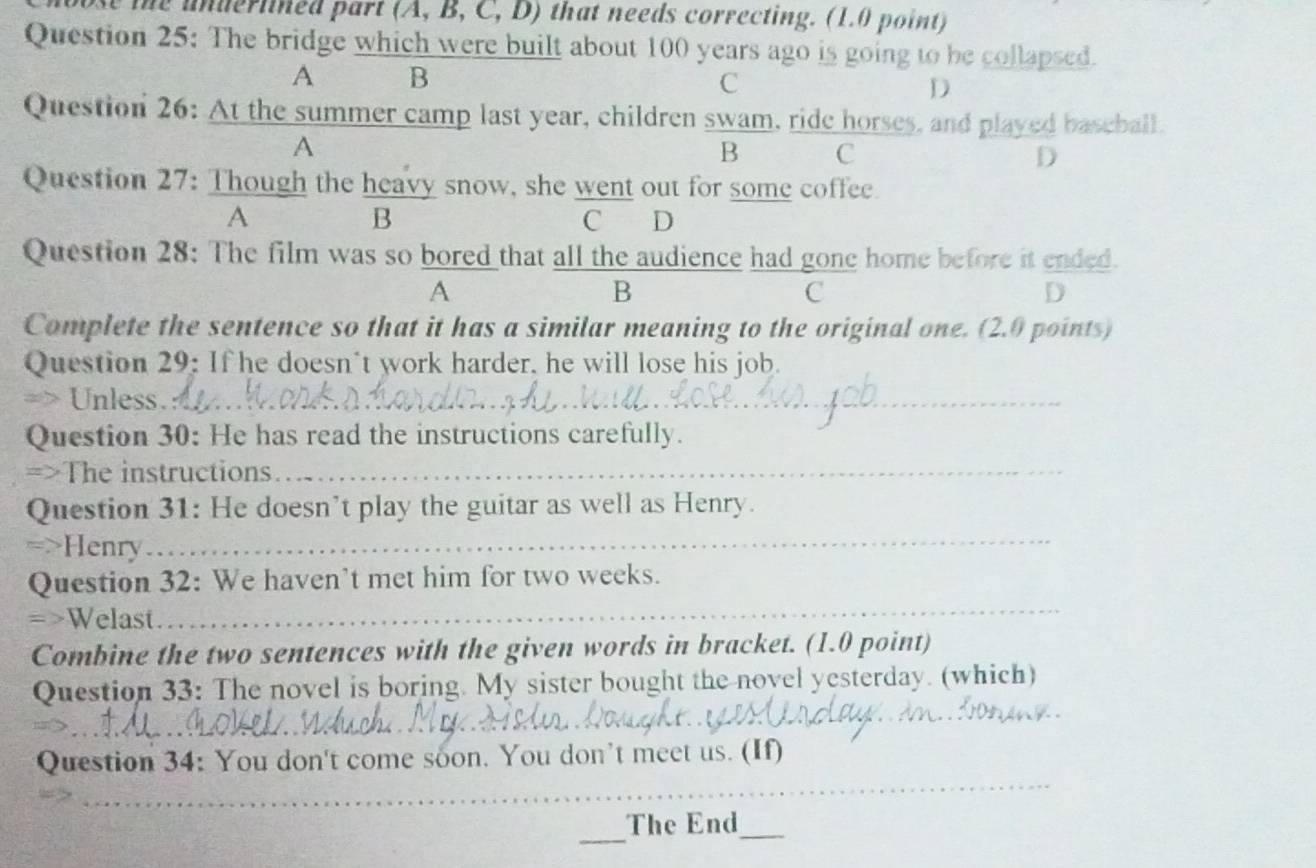 the underlined part (A, B, C, D) that needs correcting. (1.0 point)
Question 25: The bridge which were built about 100 years ago is going to be collapsed.
A B C D
Question 26: At the summer camp last year, children swam, ride horses, and played baseball.
A B C D
Question 27: Though the heavy snow, she went out for some coffee.
A B C D
Question 28: The film was so bored that all the audience had gone home before it ended.
A B C D
Complete the sentence so that it has a similar meaning to the original one. (2.0 points)
Question 29: If he doesn't work harder, he will lose his job.
=> Unless he works harder, he will lose his job
Question 30: He has read the instructions carefully.
=>The instructions
Question 31: He doesn't play the guitar as well as Henry.
=>Henry
Question 32: We haven't met him for two weeks.
=>Welast
Combine the two sentences with the given words in bracket. (1.0 point)
Question 33: The novel is boring. My sister bought the novel yesterday. (which)
=> the novel which My sister bought yesterday
Question 34: You don't come soon. You don't meet us. (If)
=>
___The End___